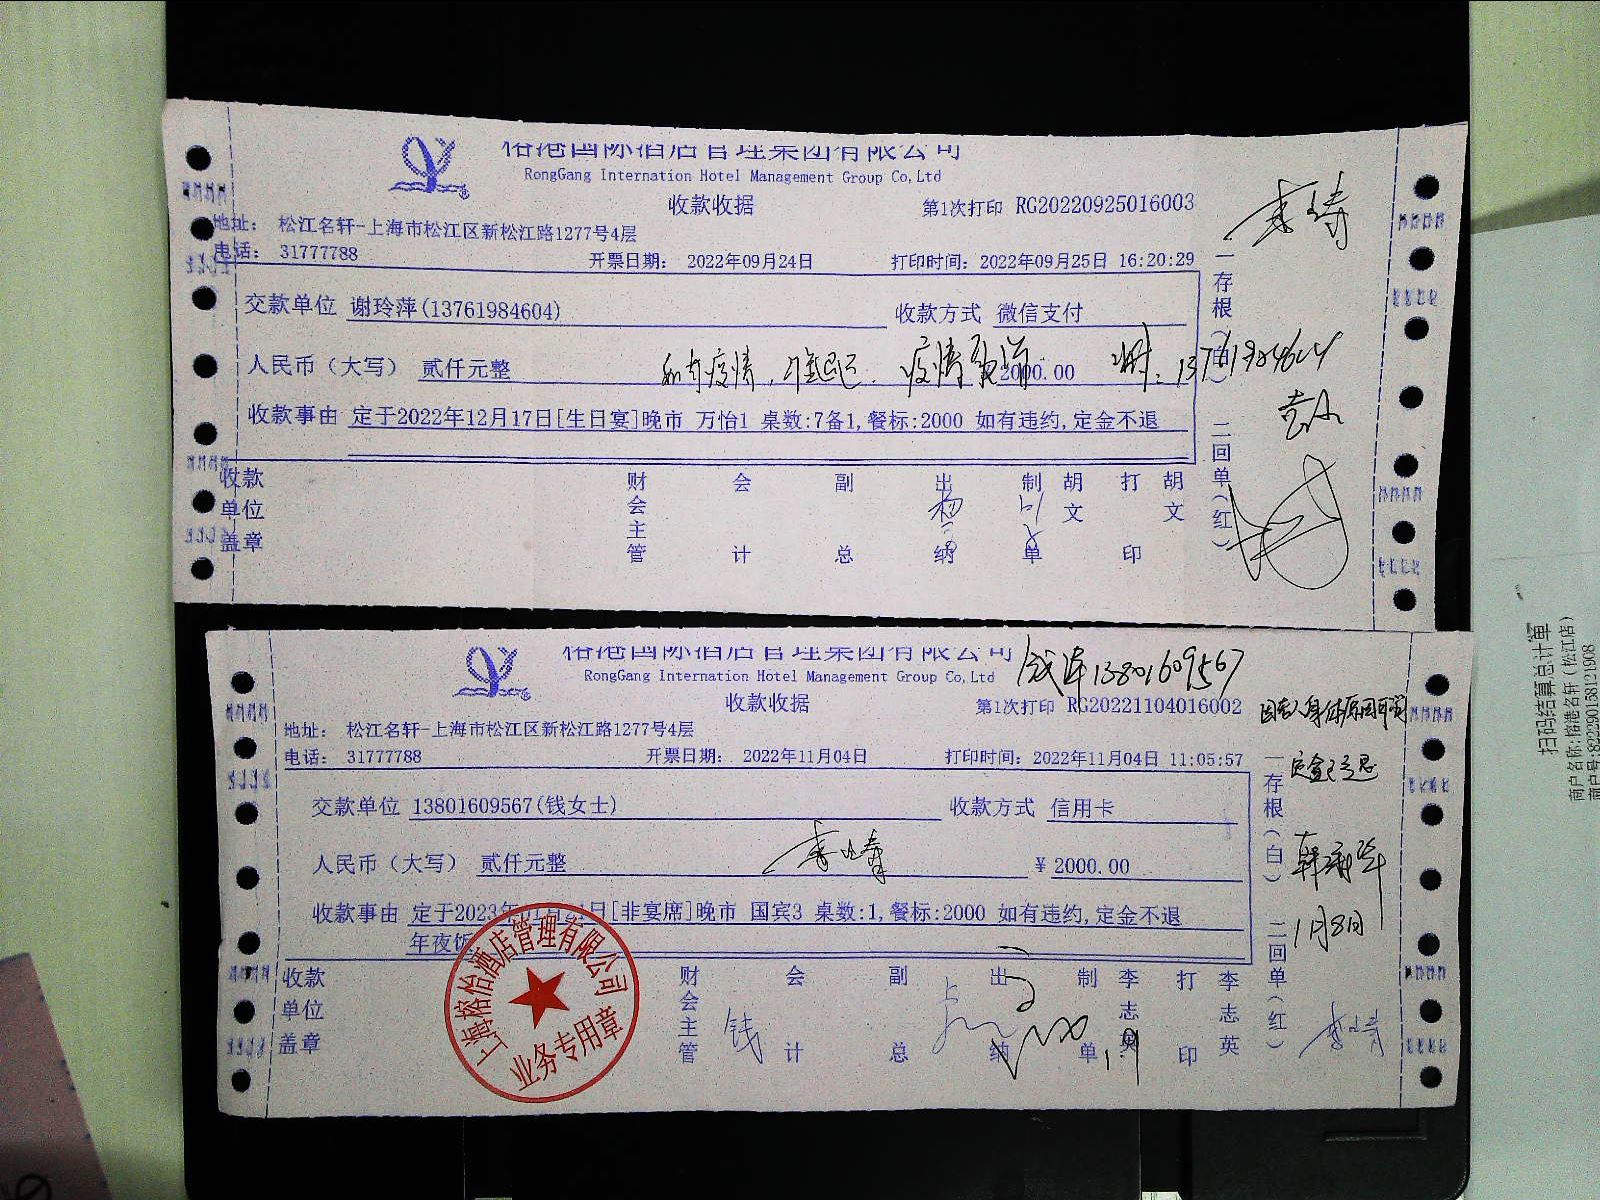 榕港国际酒店管理集团有限公司
RongGang Internation Hotel Management Group Co,Ltd
收款收据
第1次打印 RG20220925016003
地址： 松江名轩-上海市松江区新松江路1277号4层
电话： 31777788
开票日期： 2022年09月24日
打印时间：2022年09月25日 16:20:29
交款单位 谢玲萍(13761984604)
收款方式 微信支付
人民币（大写） 贰仟元整
疫情
2000.00
收款事由 定于2022年12月17日[生日宴]晚市 万怡1 桌数:7备1,餐标:2000 如有违约,定金不退
收款单位盖章
财会主管
会计
副总
出纳
制单
胡文
打印
胡文
一存根（白） 二回单（红）
榕港国际酒店管理集团有限公司
RongGang Internation Hotel Management Group Co,Ltd
13801609567
收款收据
第1次打印 RG20221104016002
因老人身体原因取消
地址： 松江名轩-上海市松江区新松江路1277号4层
电话： 31777788
开票日期： 2022年11月04日
打印时间：2022年11月04日 11:05:57
交款单位 13801609567(钱女士)
收款方式 信用卡
人民币（大写） 贰仟元整
¥ 2000.00
收款事由 定于2023年01月21日[非宴席]晚市 国宾3 桌数:1,餐标:2000 如有违约,定金不退
年夜饭
1月8日
收款单位盖章
财会主管
钱
会计
副总
出纳
制单
李志英
打印
李志英
一存根（白） 二回单（红）
上海榕怡酒店管理有限公司
业务专用章
扫码结算总计单
商户名称:榕港名轩（松江店）
商户号:822290158121908